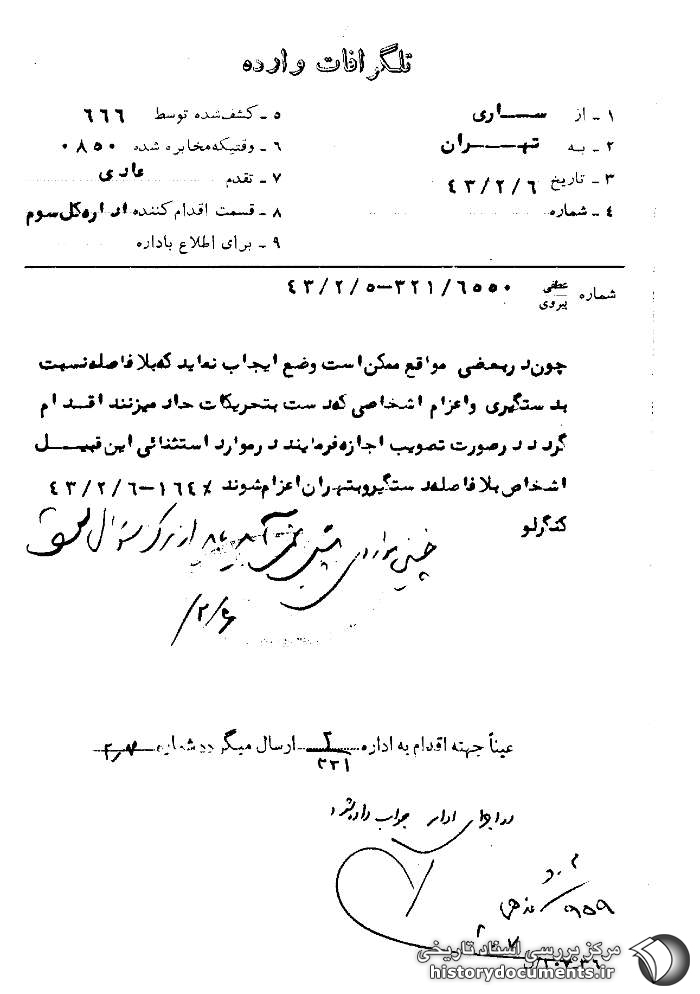 تلگرافات وارده
۱ ـ از ســـاری
۲ ـ به تهـــران
۳ ـ تاریخ ۴۳/۲/۶
۴ ـ شماره
۵ ـ کشف‌شده توسط ۶۶۶
۶ ـ وقتیکه مخابره شده ۰۸۵۰
۷ ـ تقدم عادی
۸ ـ قسمت اقدام کننده اداره کل سوم
۹ ـ برای اطلاع باداره
شماره عطفی پیروی ۴۳/۲/۵-۳۲۱/۶۵۵۰
چون در بعضی مواقع ممکن است وضع ایجاب نماید که بلافاصله نسبت
بدستگیری واعزام اشخاصی که دست بتحریکات حاد میزنند اقدام
گردد در صورت تصویب اجازه فرمایند در موارد استثنائی این قبیل
اشخاص بلافاصله دستگیر و بتهران اعزام شوند ٪ ۱۶۴-۴۳/۲/۶
کنگرلو
۲/۶/
عیناً جهته اقدام به اداره ۲/۳۲۱ ارسال میگردد شماره ۲٫۷
اداره جواب داده شود
م . د
۹۵۹
۲ . ۷
مرکز بررسی اسناد تاریخی
historydocuments.ir